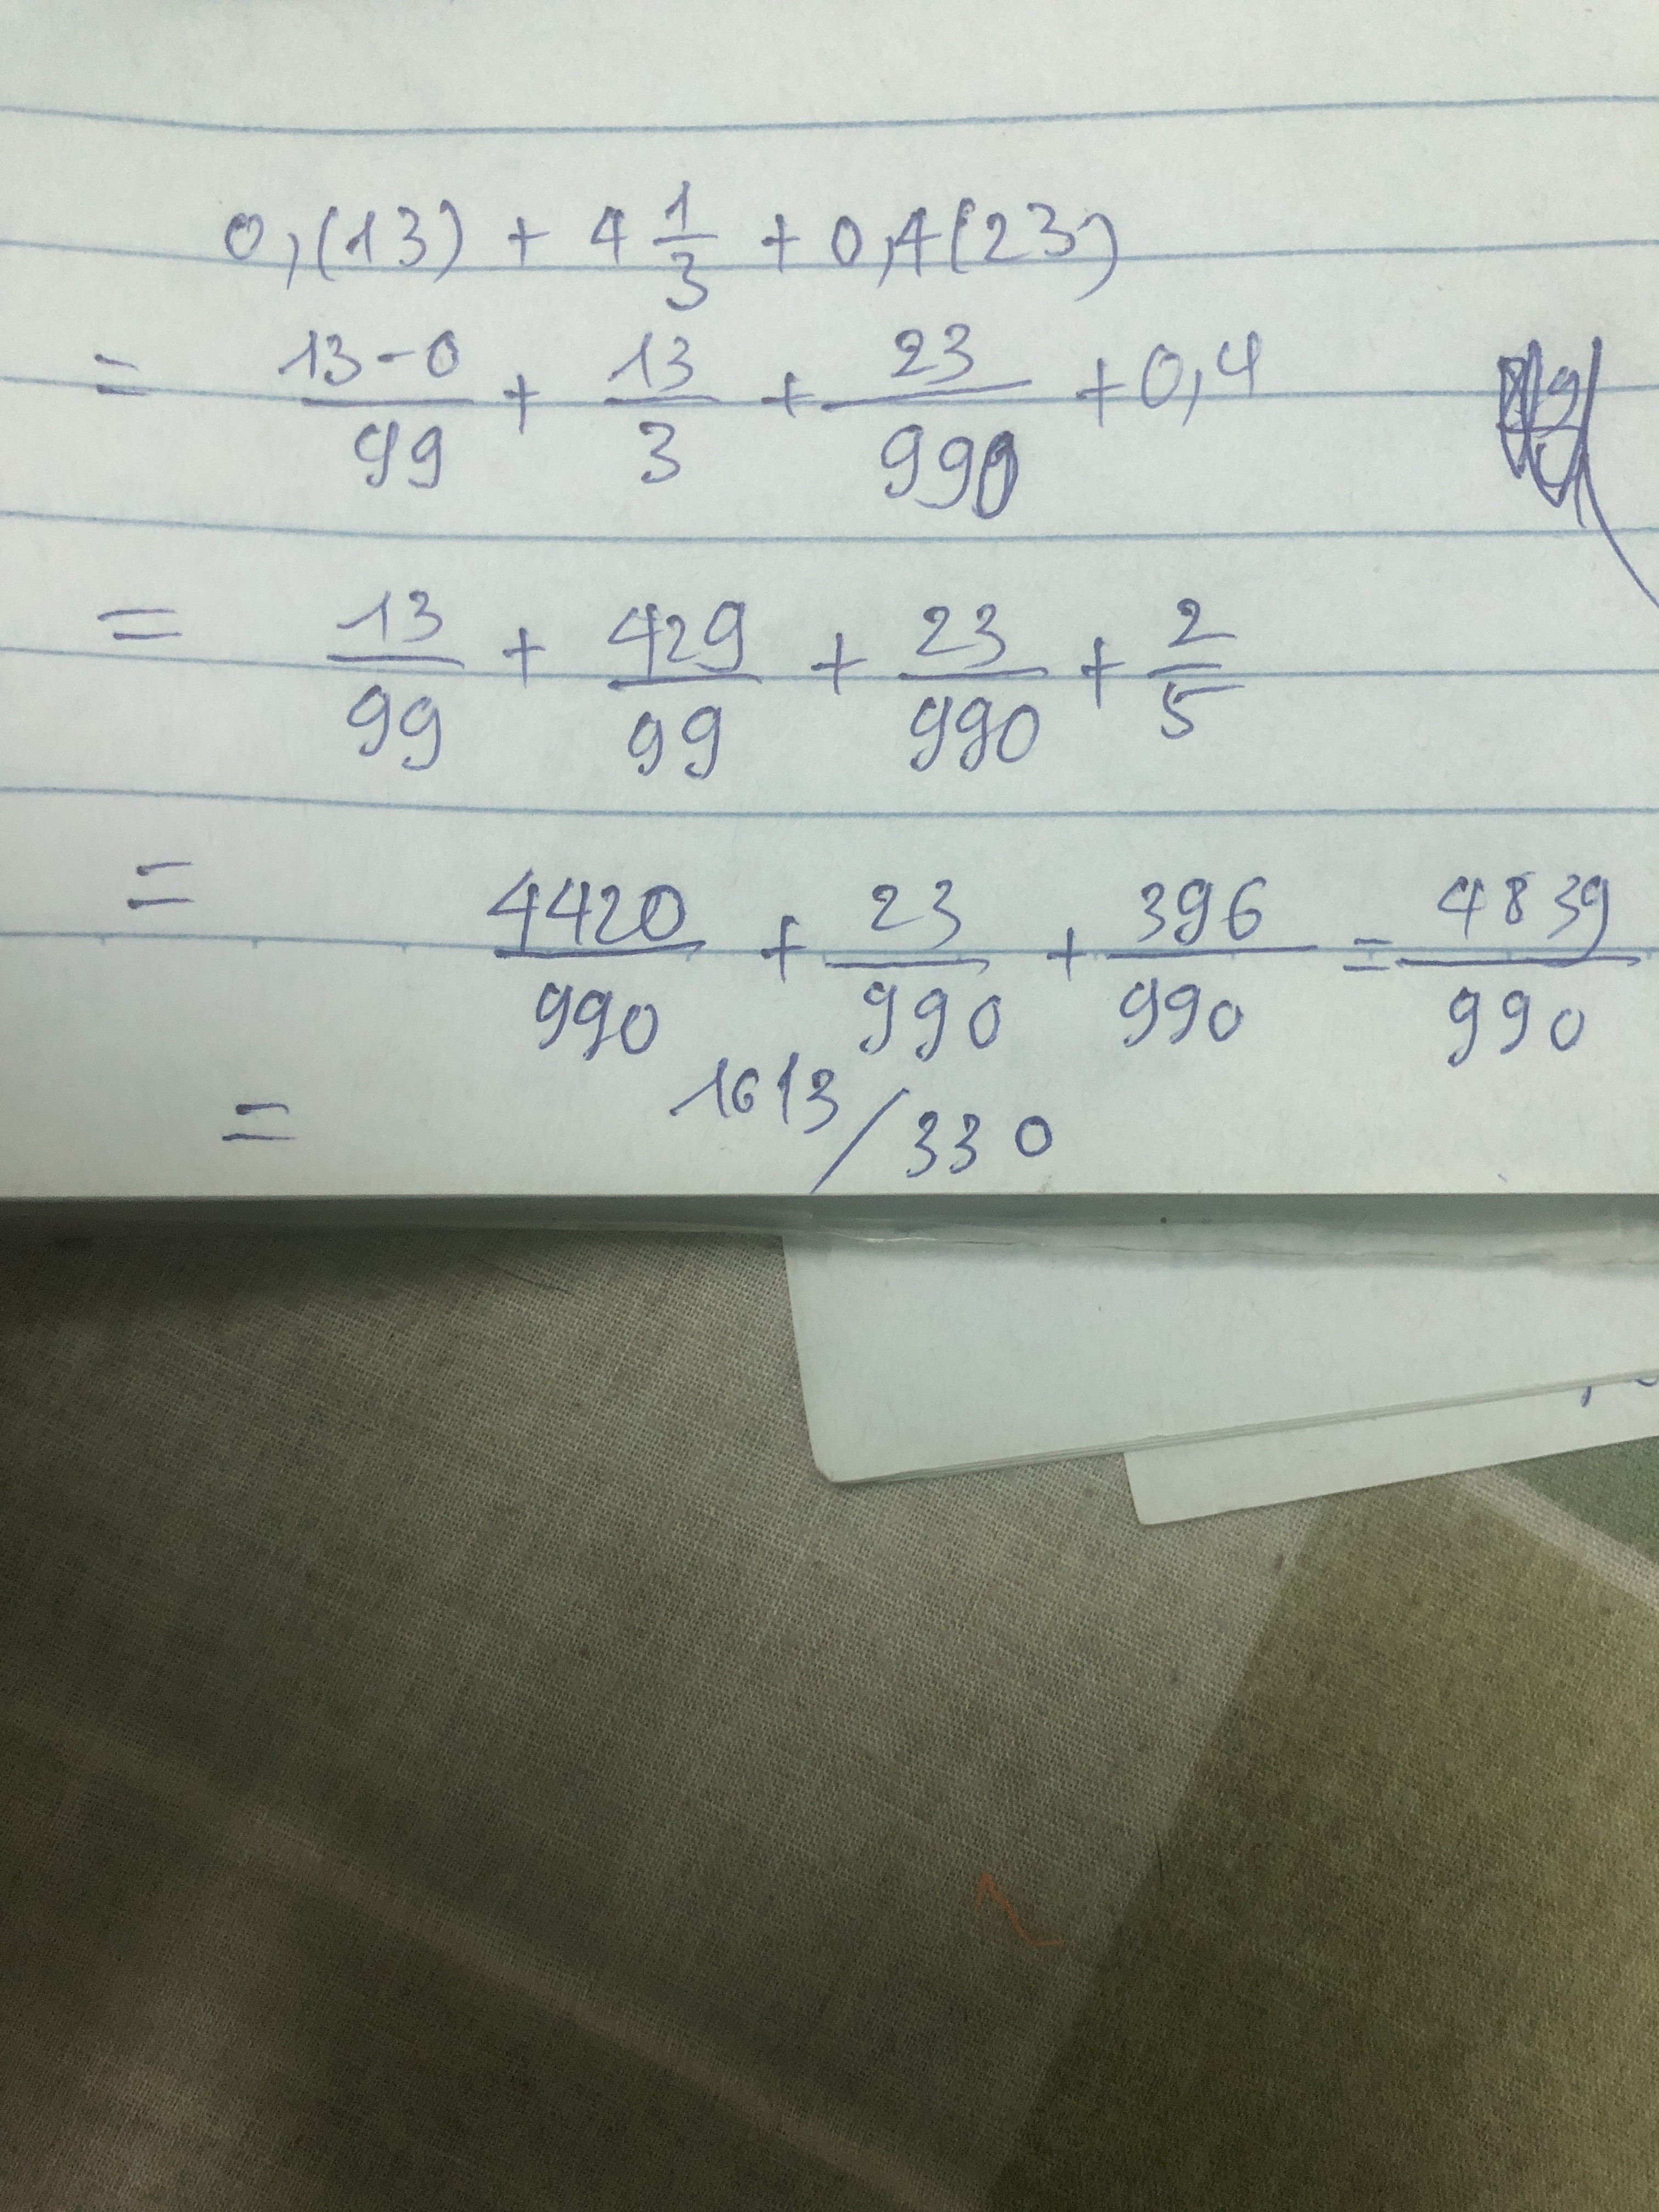 0,(13) + 4 1/3 + 0,4(23)
= (13-0)/99 + 13/3 + 23/990 + 0,4
= 13/99 + 429/99 + 23/990 + 2/5
= 4420/990 + 23/990 + 396/990 = 4839/990
= 1613/330